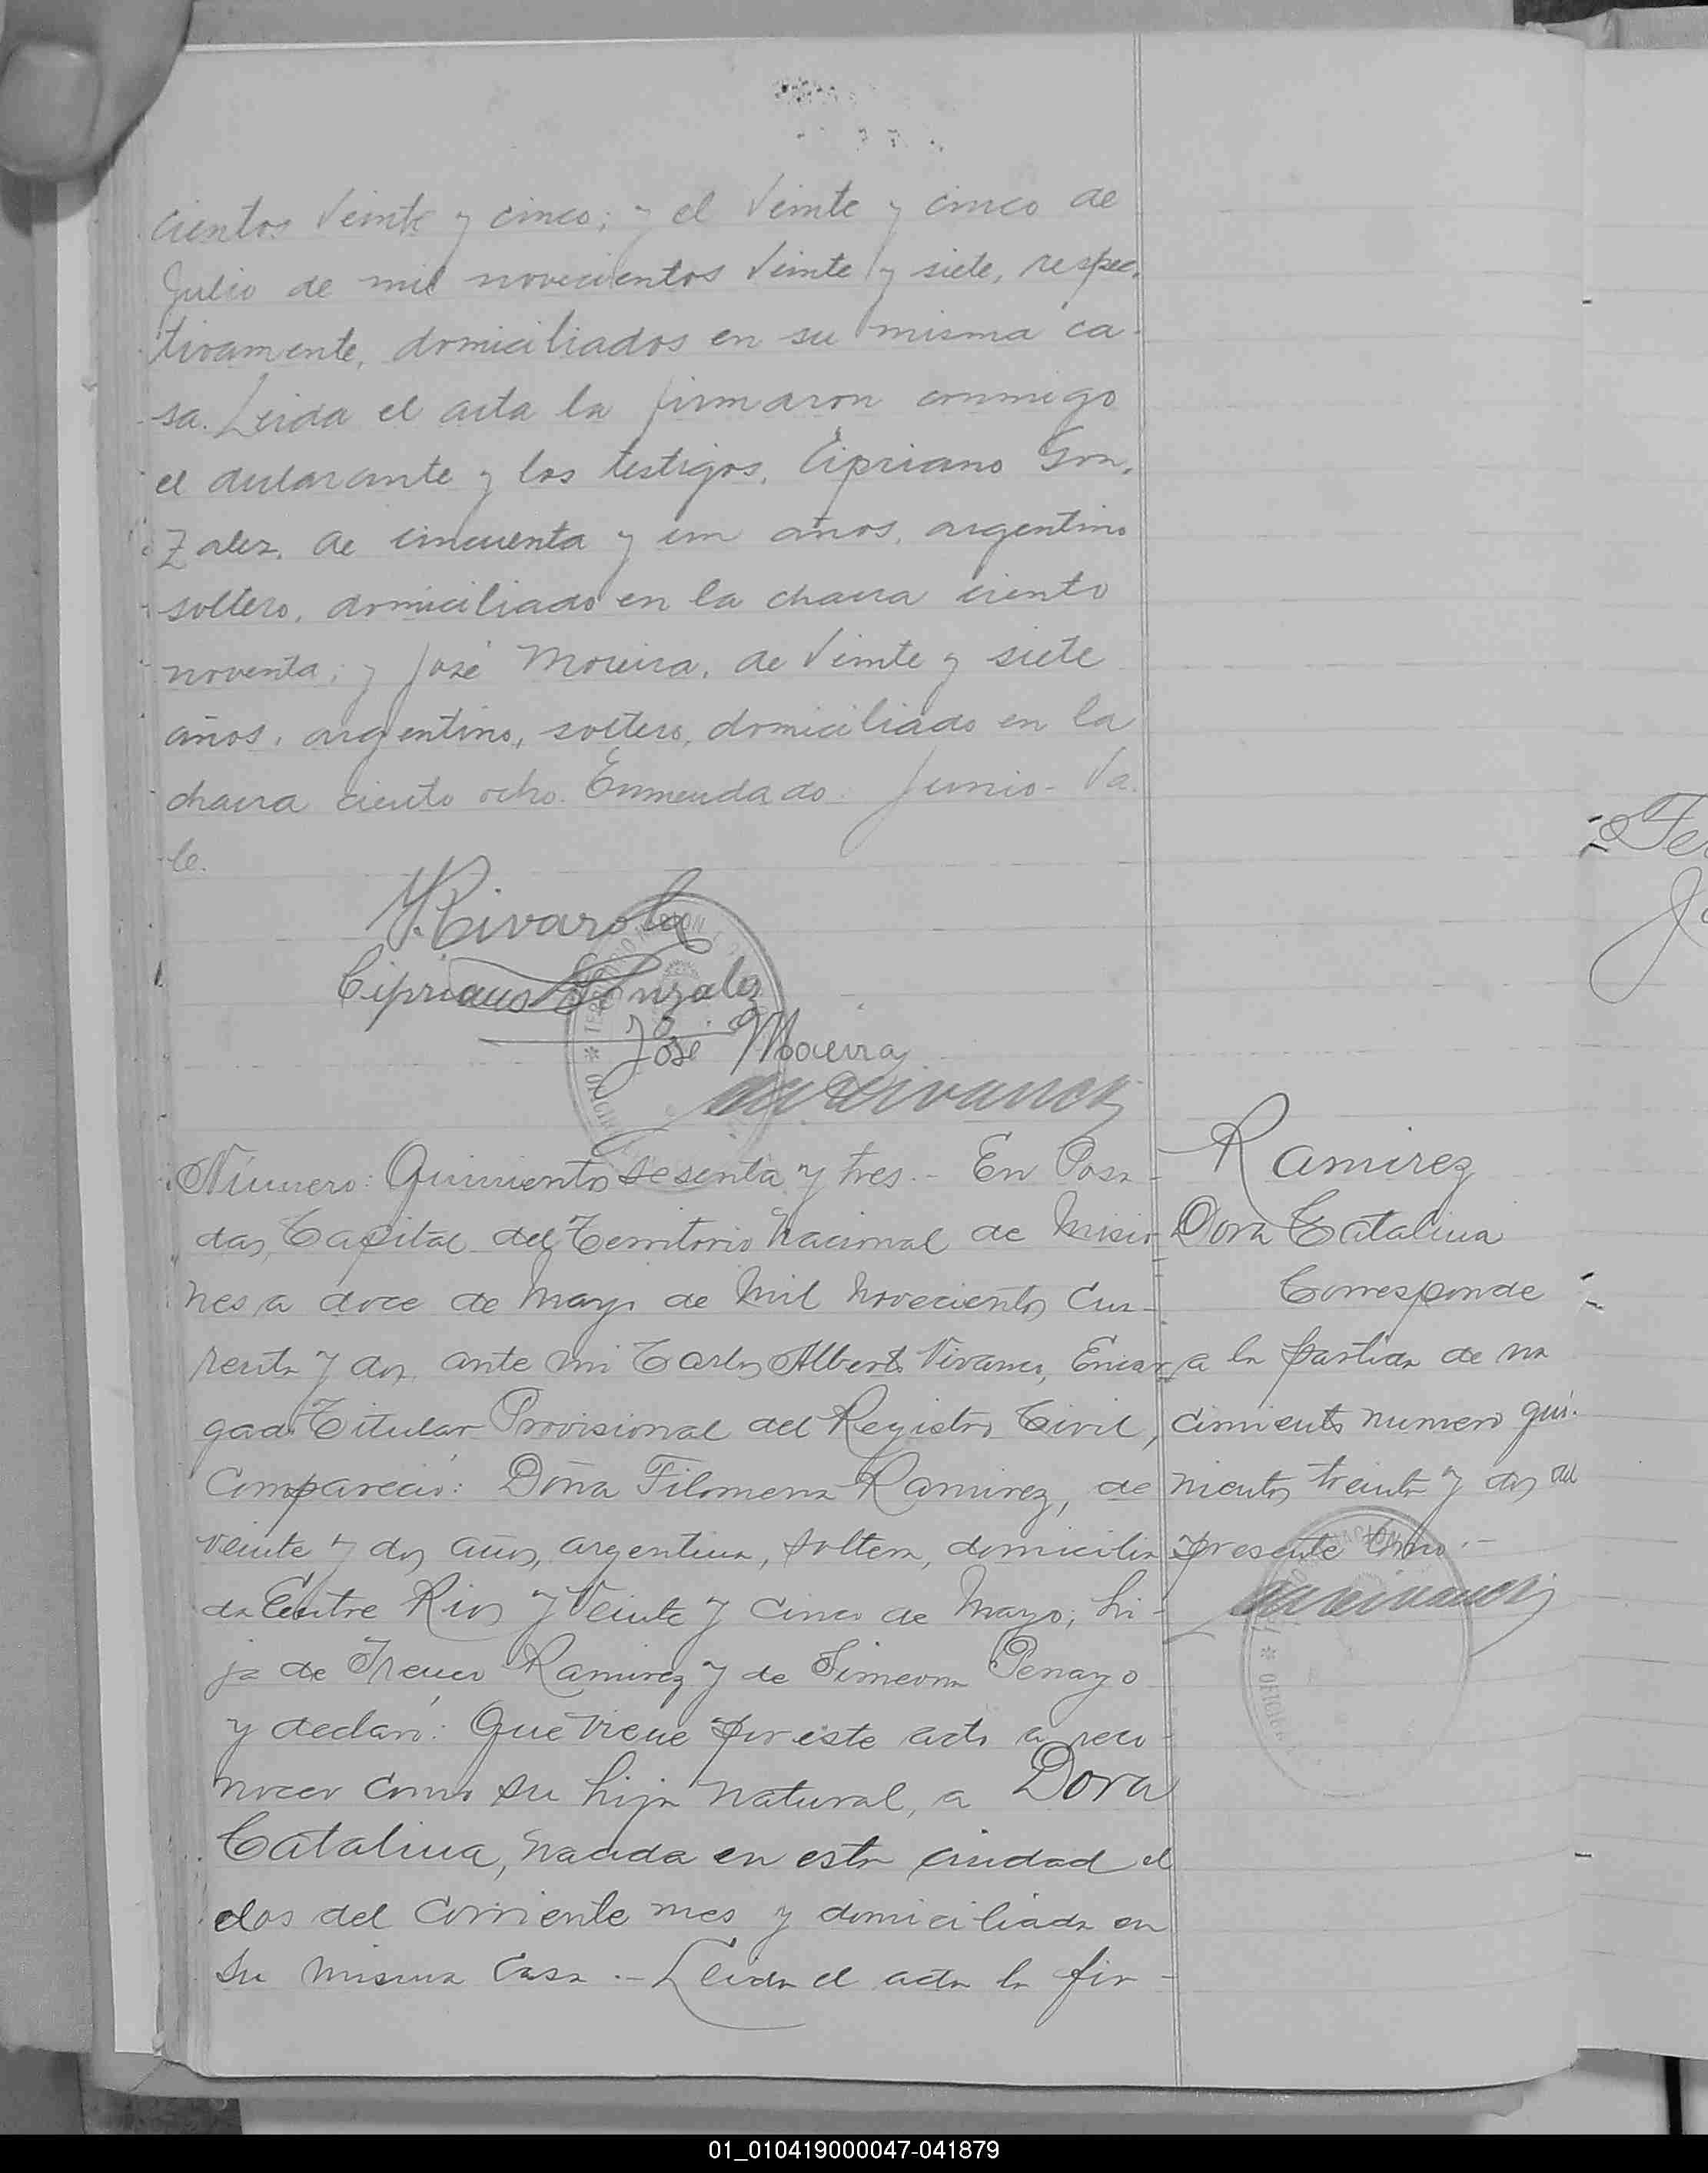 cientos veinte y cinco; y el veinte y cinco de
Julio de mil novecientos veinte y siete, respec,
tivamente, domiciliados en su misma ca-
sa. Leida el acta la firmaron conmigo
el declarante y los testigos, Cipriano Gon,
zalez, de cincuenta y un años, argentino
soltero, domiciliado en la chacra ciento
noventa; y José Moreira, de veinte y siete
años, argentino, soltero, domiciliado en la
chacra ciento ocho. Enmendado: Junio- Va.
le.
Rivarola
Cipriano Gonzalez
José Moreira
Número: Quinientos sesenta y tres.- En Posa-
das, Capital del Territorio Nacional de Misio
nes a doce de Mayo de Mil novecientos Cua-
renta y dos, ante mi Carlos Alberto Vivanco, Encar
gado Titular Provisional del Registro Civil,
Compareció: Doña Filomena Ramirez, de
veinte y dos años, argentina, soltera, domicilia
da Entre Rios y Veinte y Cinco de Mayo; hi-
ja de Ireneo Ramirez y de Simeona Penayo
y declaró: Que viene por este acto a reco-
nocer como su hija natural, a Dora
Catalina, nacida en esta ciudad el
dos del corriente mes y domiciliada en
su misma casa.- Leida el acta la fir-
Ramirez
Dora Catalina
Corresponde
a la partida de na
cimiento numero qui-
nientos treinta y dos del
presente año.-
01_010419000047-041879